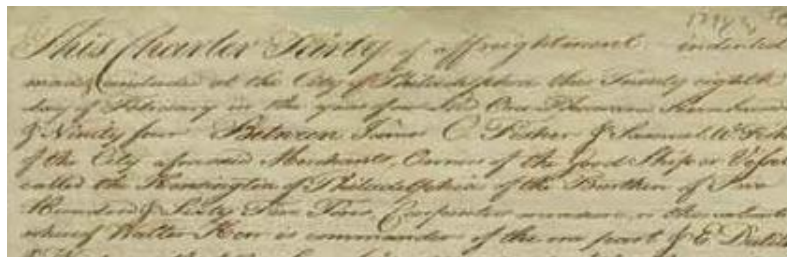 This Charter Party of affreightment indented
made concluded at the City of Philadelphia this Twenty eighth
day of February in the year of our Lord One Thousand Seven Hundred
& Ninety four Between James C. Fisher & Samuel W. Fisher
of the City aforesaid Merchants Owners of the good Ship or Vessel
called the Kensington of Philadelphia of the Burthen of Two
Hundred & Sixty Tons Carpenters measure, or thereabouts
whereof Walter Kerr is commander of the one part & E. Dutilh